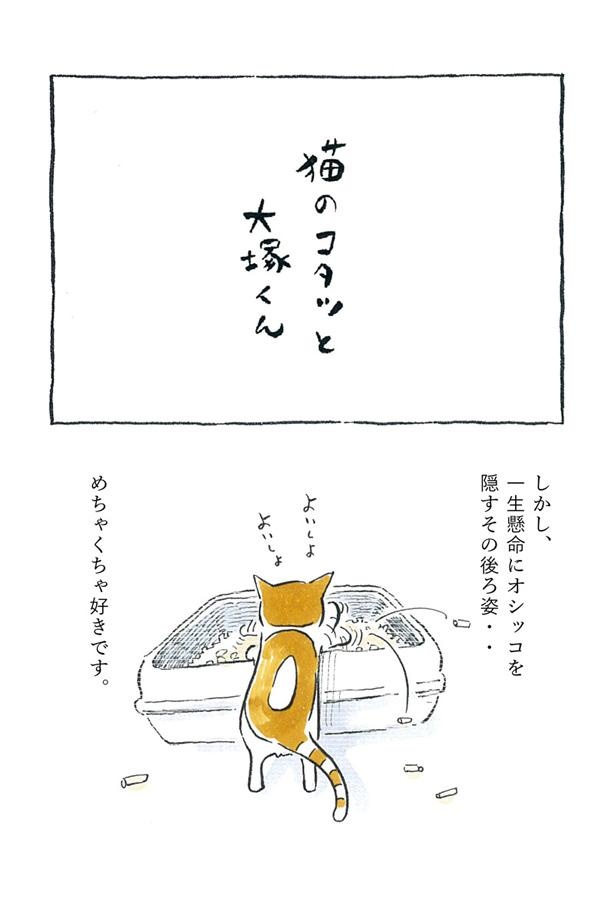 猫のコタツと
大塚くん
しかし、
一生懸命にオシッコを
隠すその後ろ姿・・
よいしょ
よいしょ
めちゃくちゃ好きです。